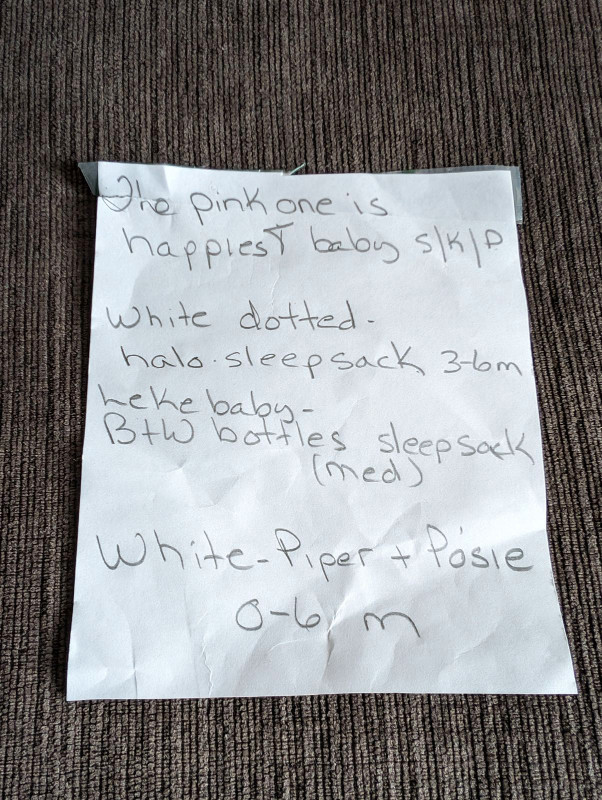 The pink one is
happiest baby S/K/P
White dotted-
halo. sleepsack 3-6m
Leke baby-
B+W bottles sleepsack
(med)
White-Piper + Posie
0-6 m